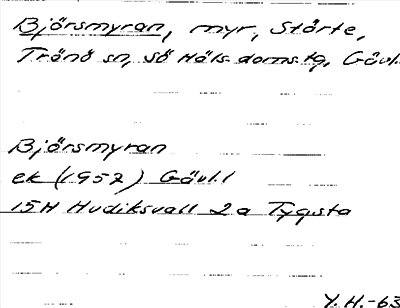 Björsmyran, myr, Störte,
Tränö sn, Sö Häls. doms.tg, Gävl.
Björsmyran
ek (1957) Gävl.l
15H Hudiksvall 2a Tygsta
Y.H.-63